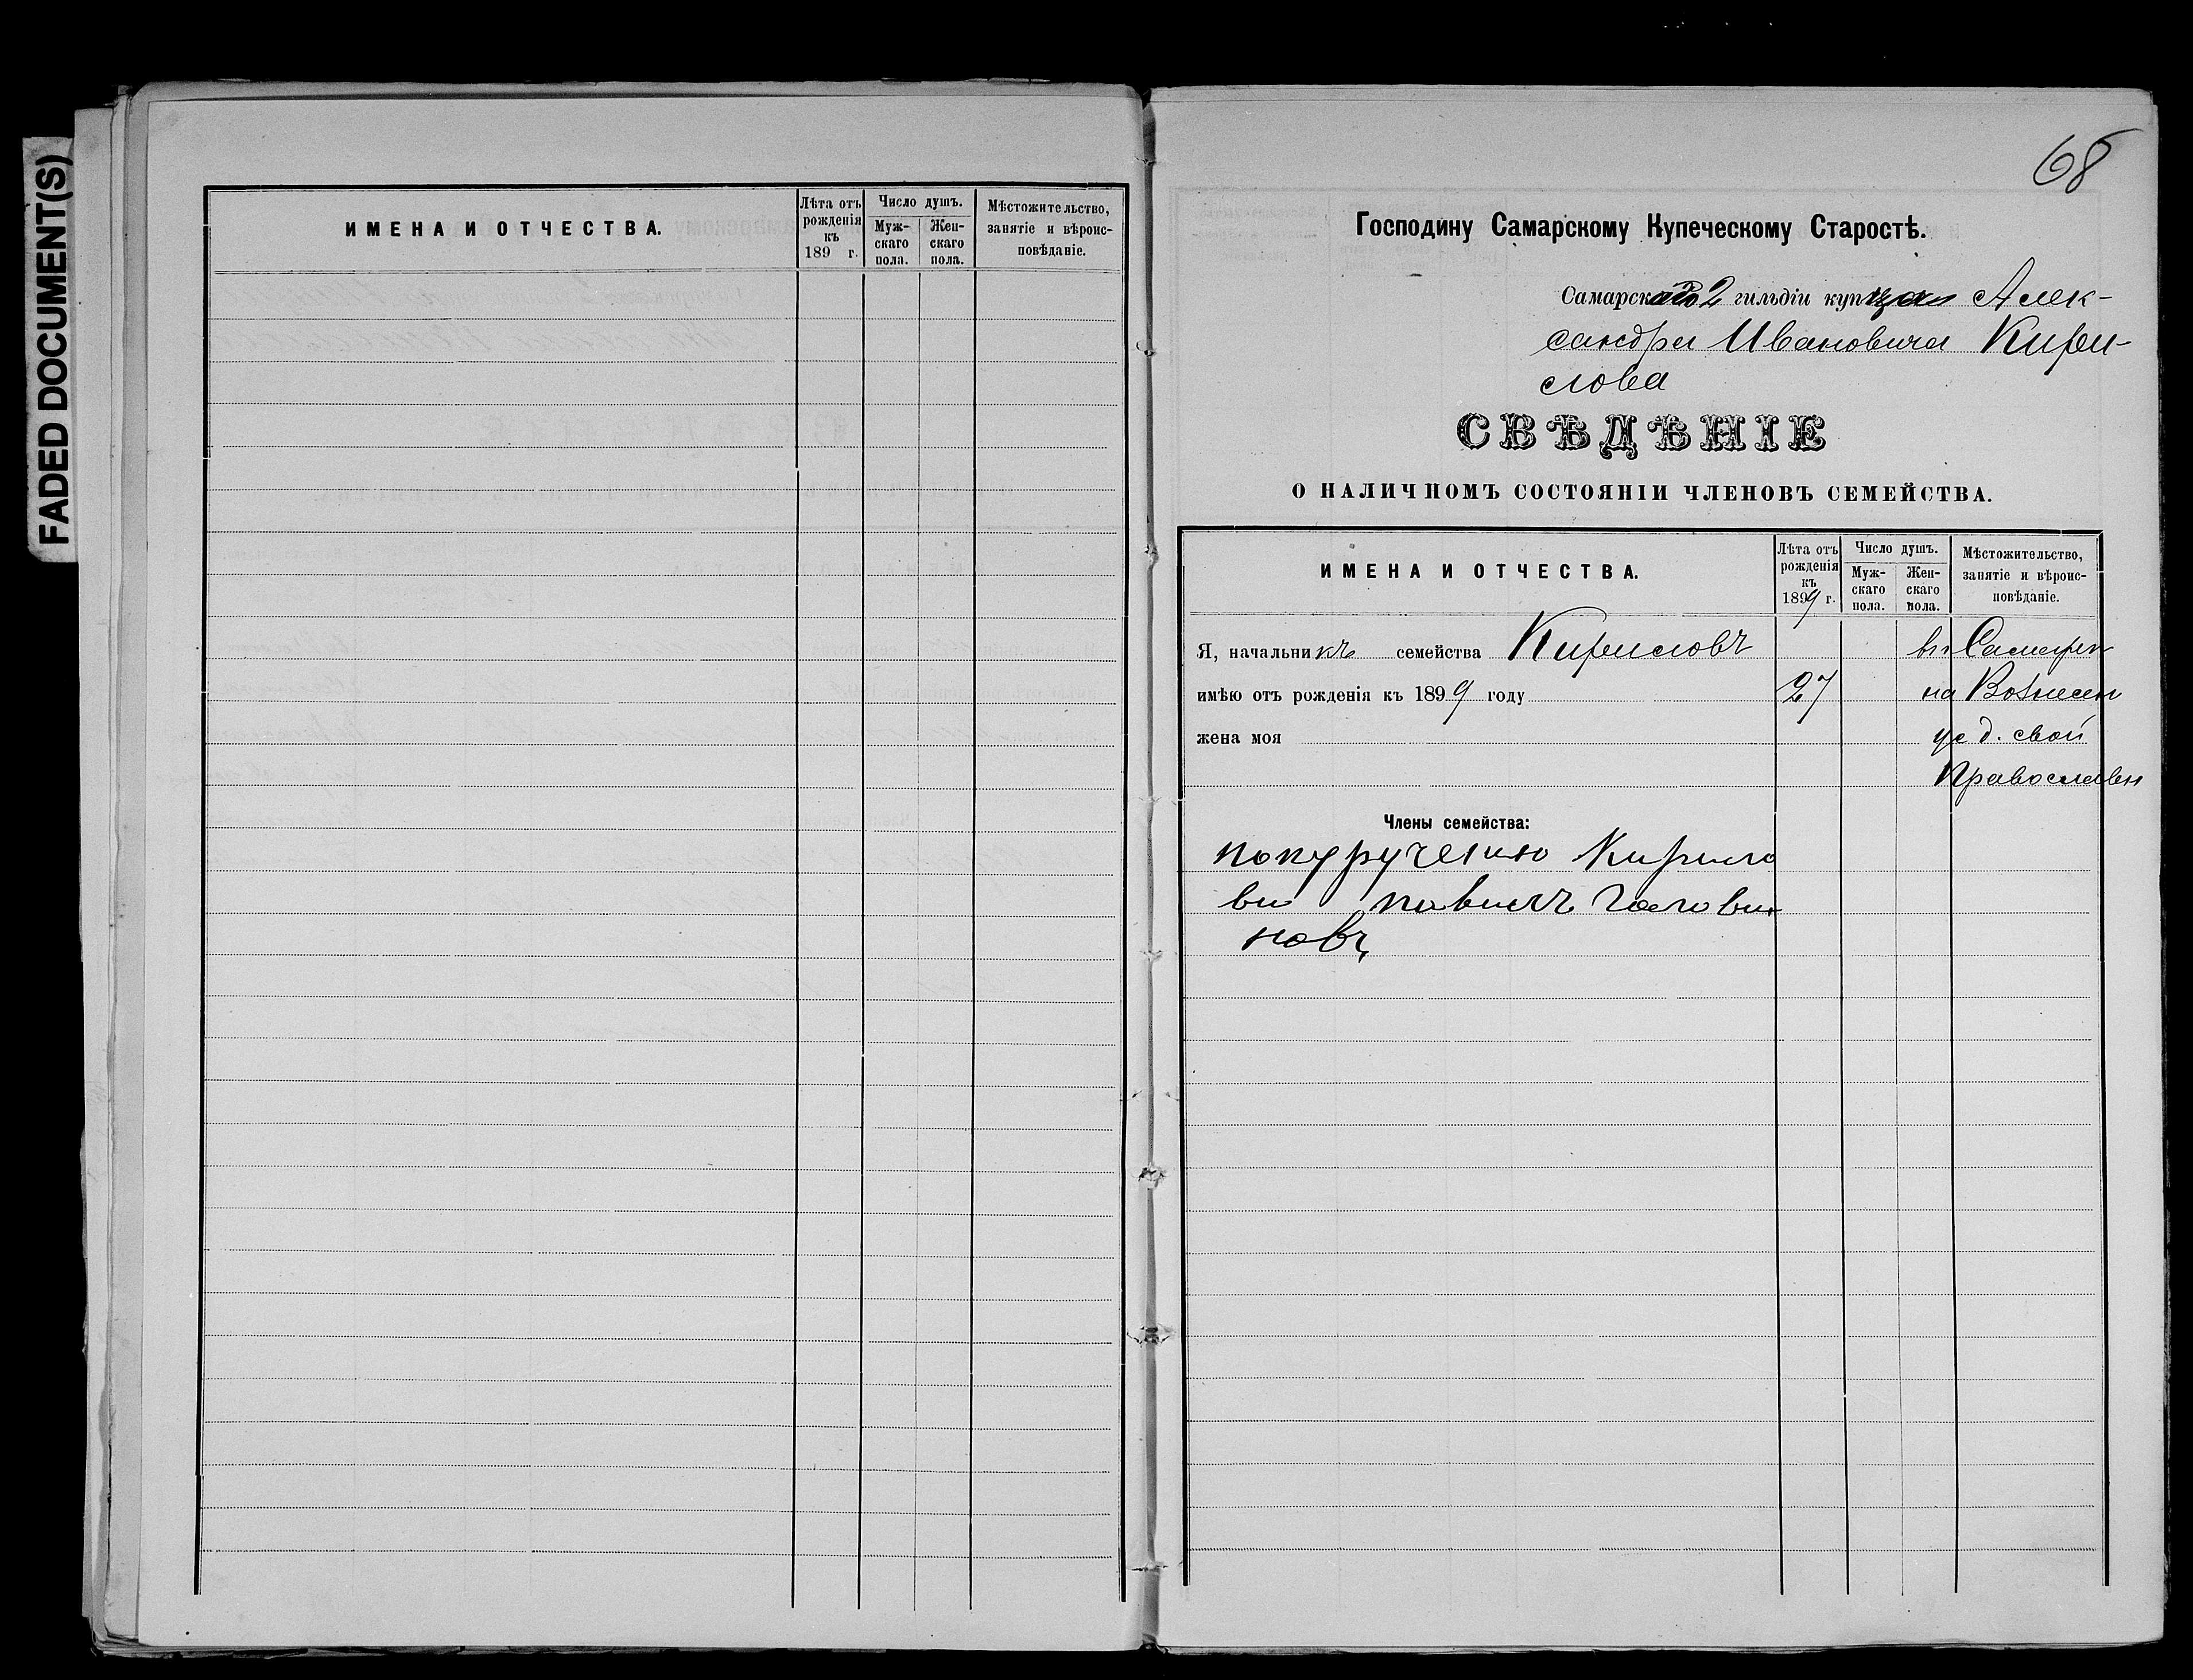 FADED DOCUMENT(S)
ИМЕНА И ОТЧЕСТВА.
Лѣта отъ рожденія къ 189 г.
Число душъ.
Мужскаго пола.
Женскаго пола.
Мѣстожительство, занятіе и вѣроисповѣданіе.
68
Господину Самарскому Купеческому Старостѣ.
Самарскаго 2 гильдіи купца Алек-
сандра Ивановича Кири-
слова
СВѢДѢНІЕ
О НАЛИЧНОМЪ СОСТОЯНІИ ЧЛЕНОВЪ СЕМЕЙСТВА.
ИМЕНА И ОТЧЕСТВА.
Лѣта отъ рожденія къ 1899 г.
Число душъ.
Муж-
скаго
пола.
Жен-
скаго
пола.
Мѣстожительство,
занятіе и вѣроис-
повѣданіе.
Я, начальникъ семейства Кирисловъ въ Самарѣ
имѣю отъ рожденія къ 1899 году 27 на Вознесен
жена моя ус д. свой
Православн
Члены семейства:
Кирило
ва Головин
новъ